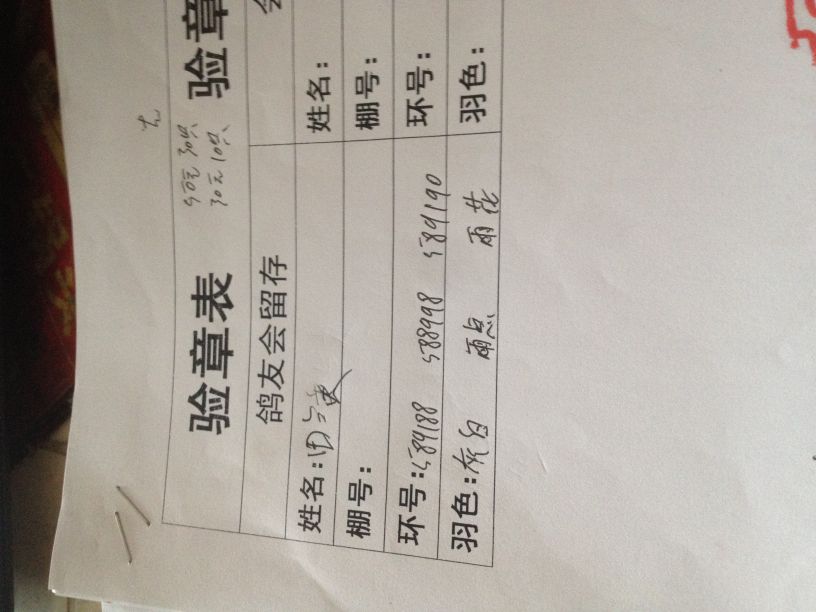 验章表
50元 30只
30元 10只
验章
鸽友会留存
姓名：田
姓名：
棚号：
棚号：
环号：589188 588998 589190
环号：
羽色：灰白 雨点 雨花
羽色：